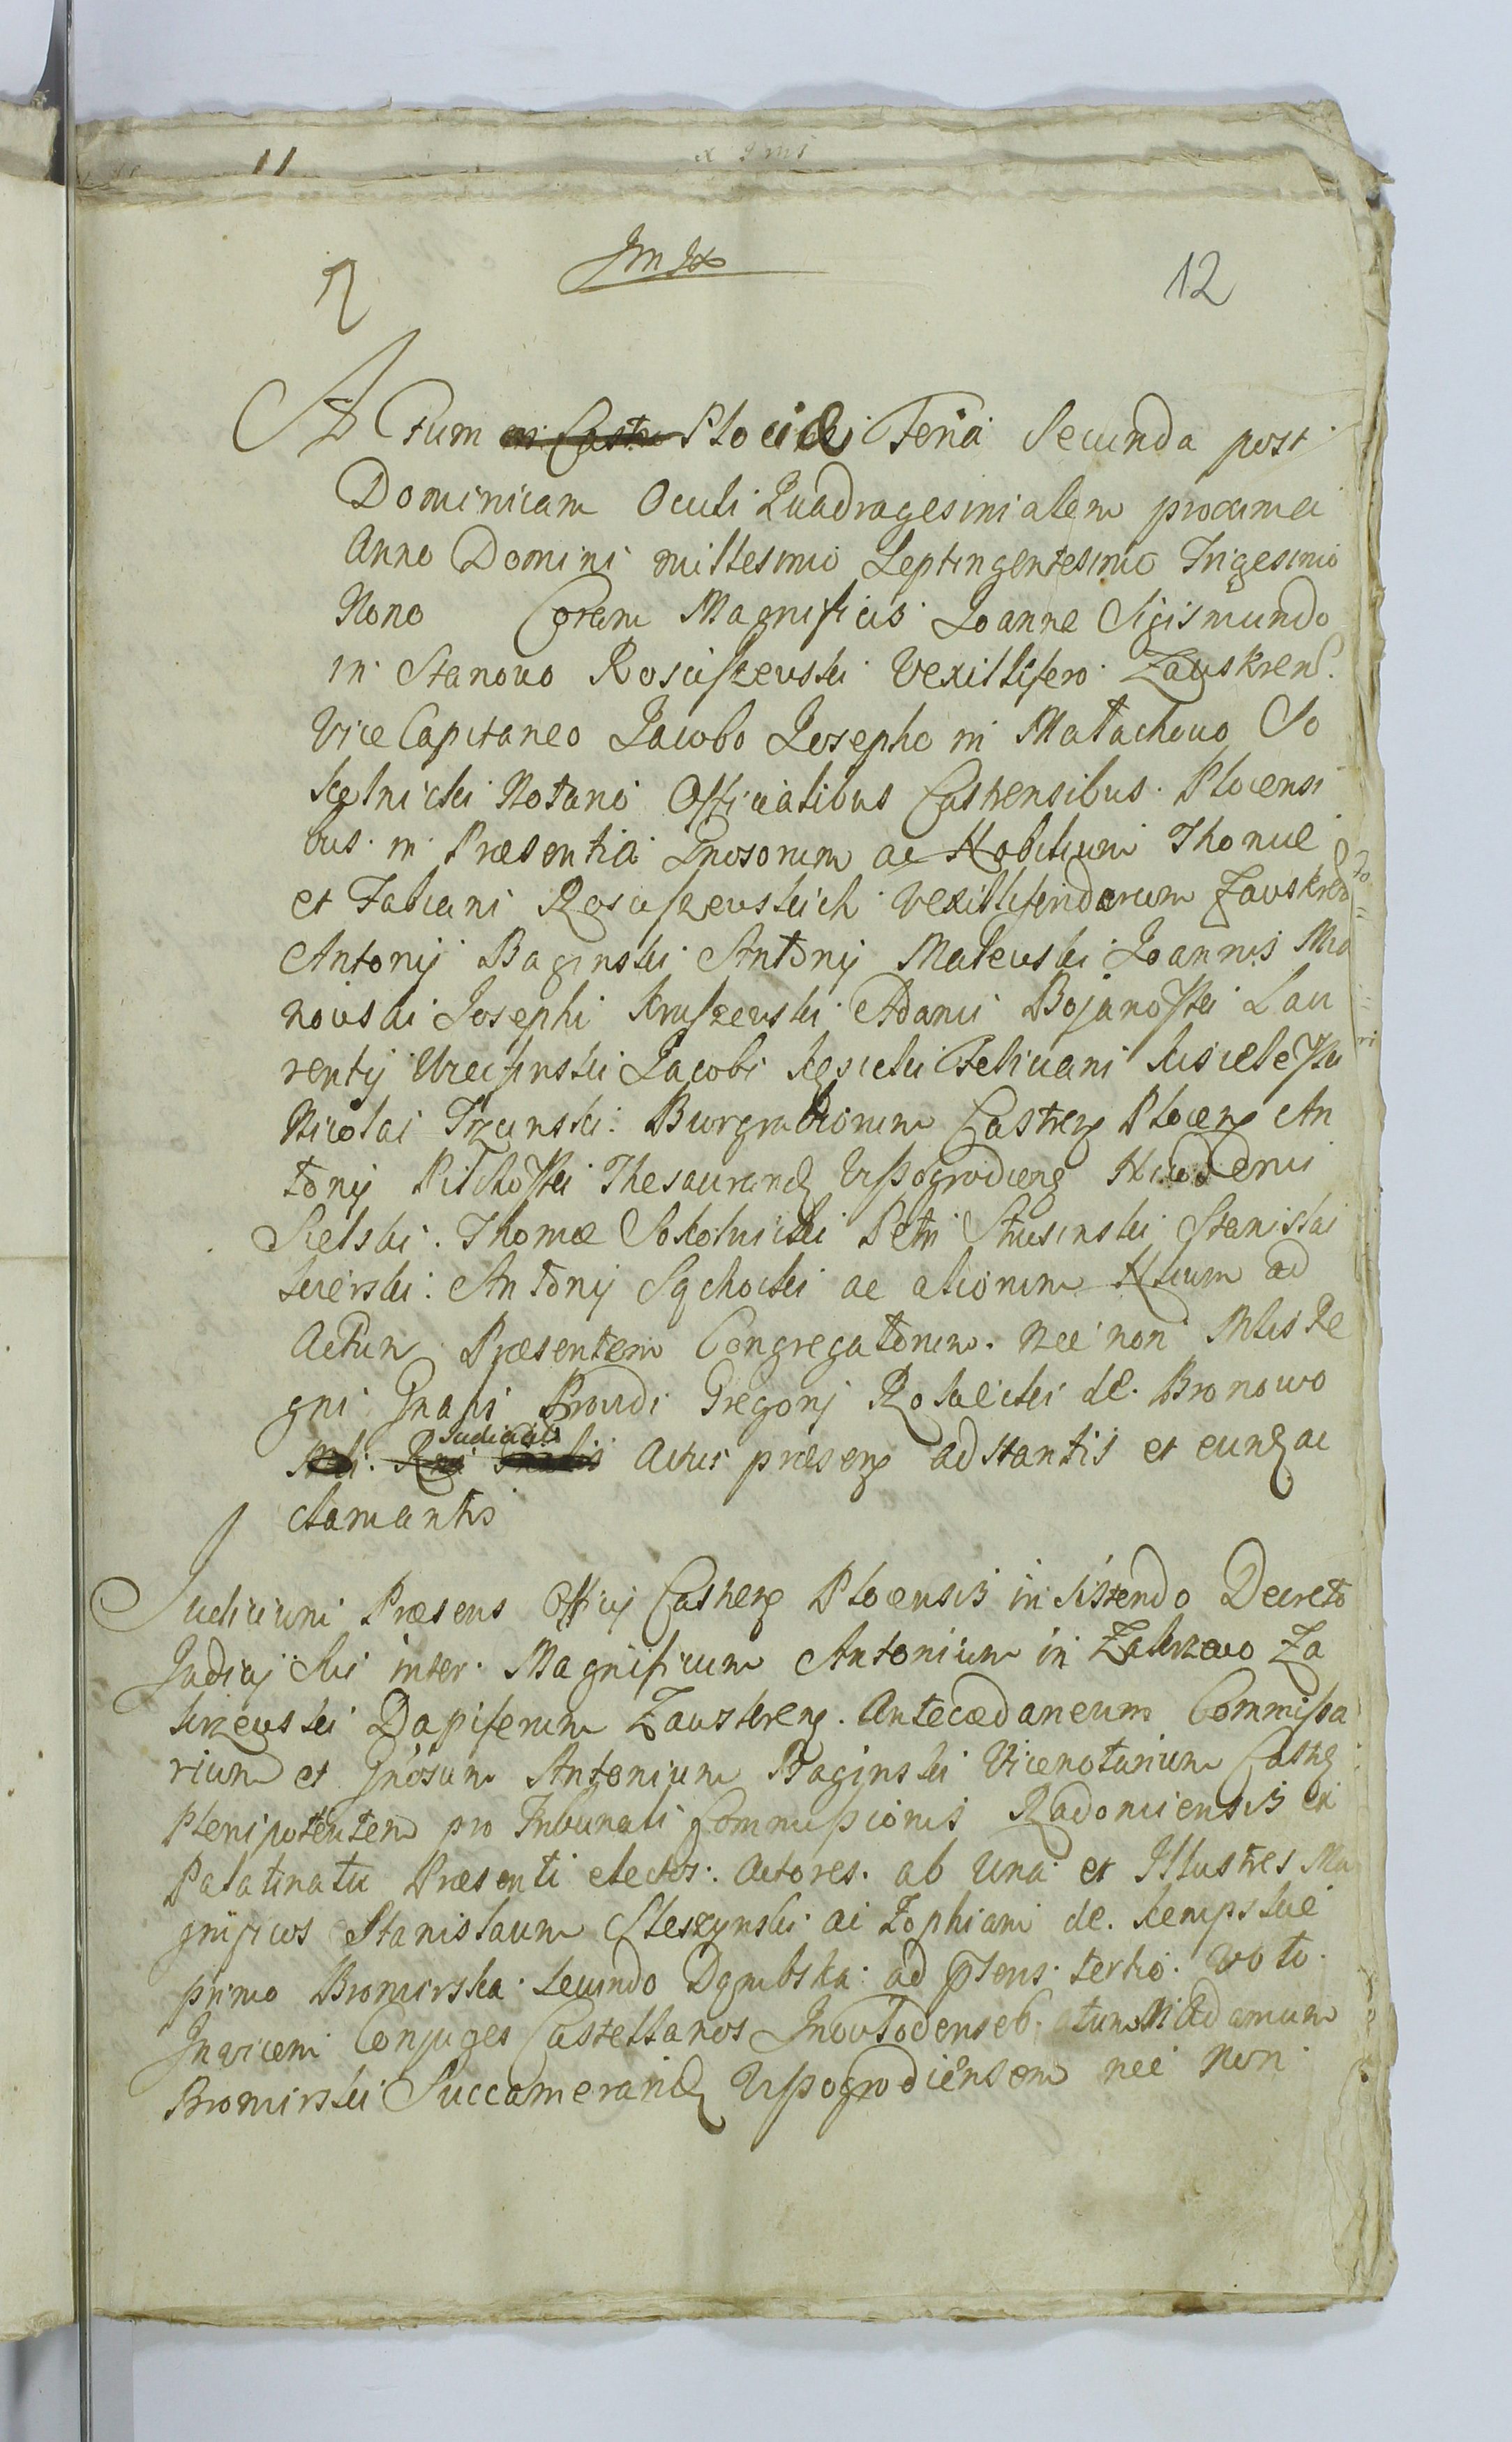 11
12
Actum in Castro Plociae Feria Secunda post
Dominicam Oculi Quadragesimalem proxima
Anno Domini millesimo Septingentesimo Trigesimo
Nono Coram Magnificis Joanne Sigismundo
in Stanowo Rosciszewski Vexillifero Zawskren.
Vice Capitaneo Jacobo Josepho in Małachowo So
kolnicki Notario Officialibus Castrensibus Plocensi
bus in Præsentia Gnosorum ac Nobilium Thomæ
et Fabiani Rosciszewskich Vexilliferidarum Zawskren
Antonij Baginski Antonij Malewski Joannis Mia
nowski Josephi Kruszewski Adami Bojanowski Lau
rentij Jacobi Feliciani Kisielewski
Nicolai Trzcinski Burgrabiorum Castren Plocen An
tonij Pilchowski Thesaurarid Wyssogrodien
Sielski Thomæ Sokolnicki Petri Strusinski Stanislai
Antonij Sochocki ac aliorum Nlium ad
Actum Præsentem Congregatorum nec non Mlis Re
gni Gnalis Providi Gregorij de Bronowo
Judicialis
Mli Rni Gnalis Actui præsen adstantis et eund ac
clamantis
Judicium Præsens Officij Castren Plocensis insistendo Decreto
Judicij sui inter Magnificum Antonium in Zakrzewo Za
krzewski Dapiferum Zawskren Antecedaneum Commissa
rium et Gnosum Antonium Baginski Vicenotarium Castren
Plenipotentem pro Tribunali Commissionis Radomiensis ex
Palatinatu Præsenti electos Actores ab una et Illustres Ma
gnificos Stanislaum Steszynski ac Zophiam de Kempskie
primo Bromirska secundo Dembska ad præsens tertio voto
Invicem Conjuges Castellanos Inowlodenses atum M Adamum
Bromirski Succamerarid Wyssogrodiensem nec non